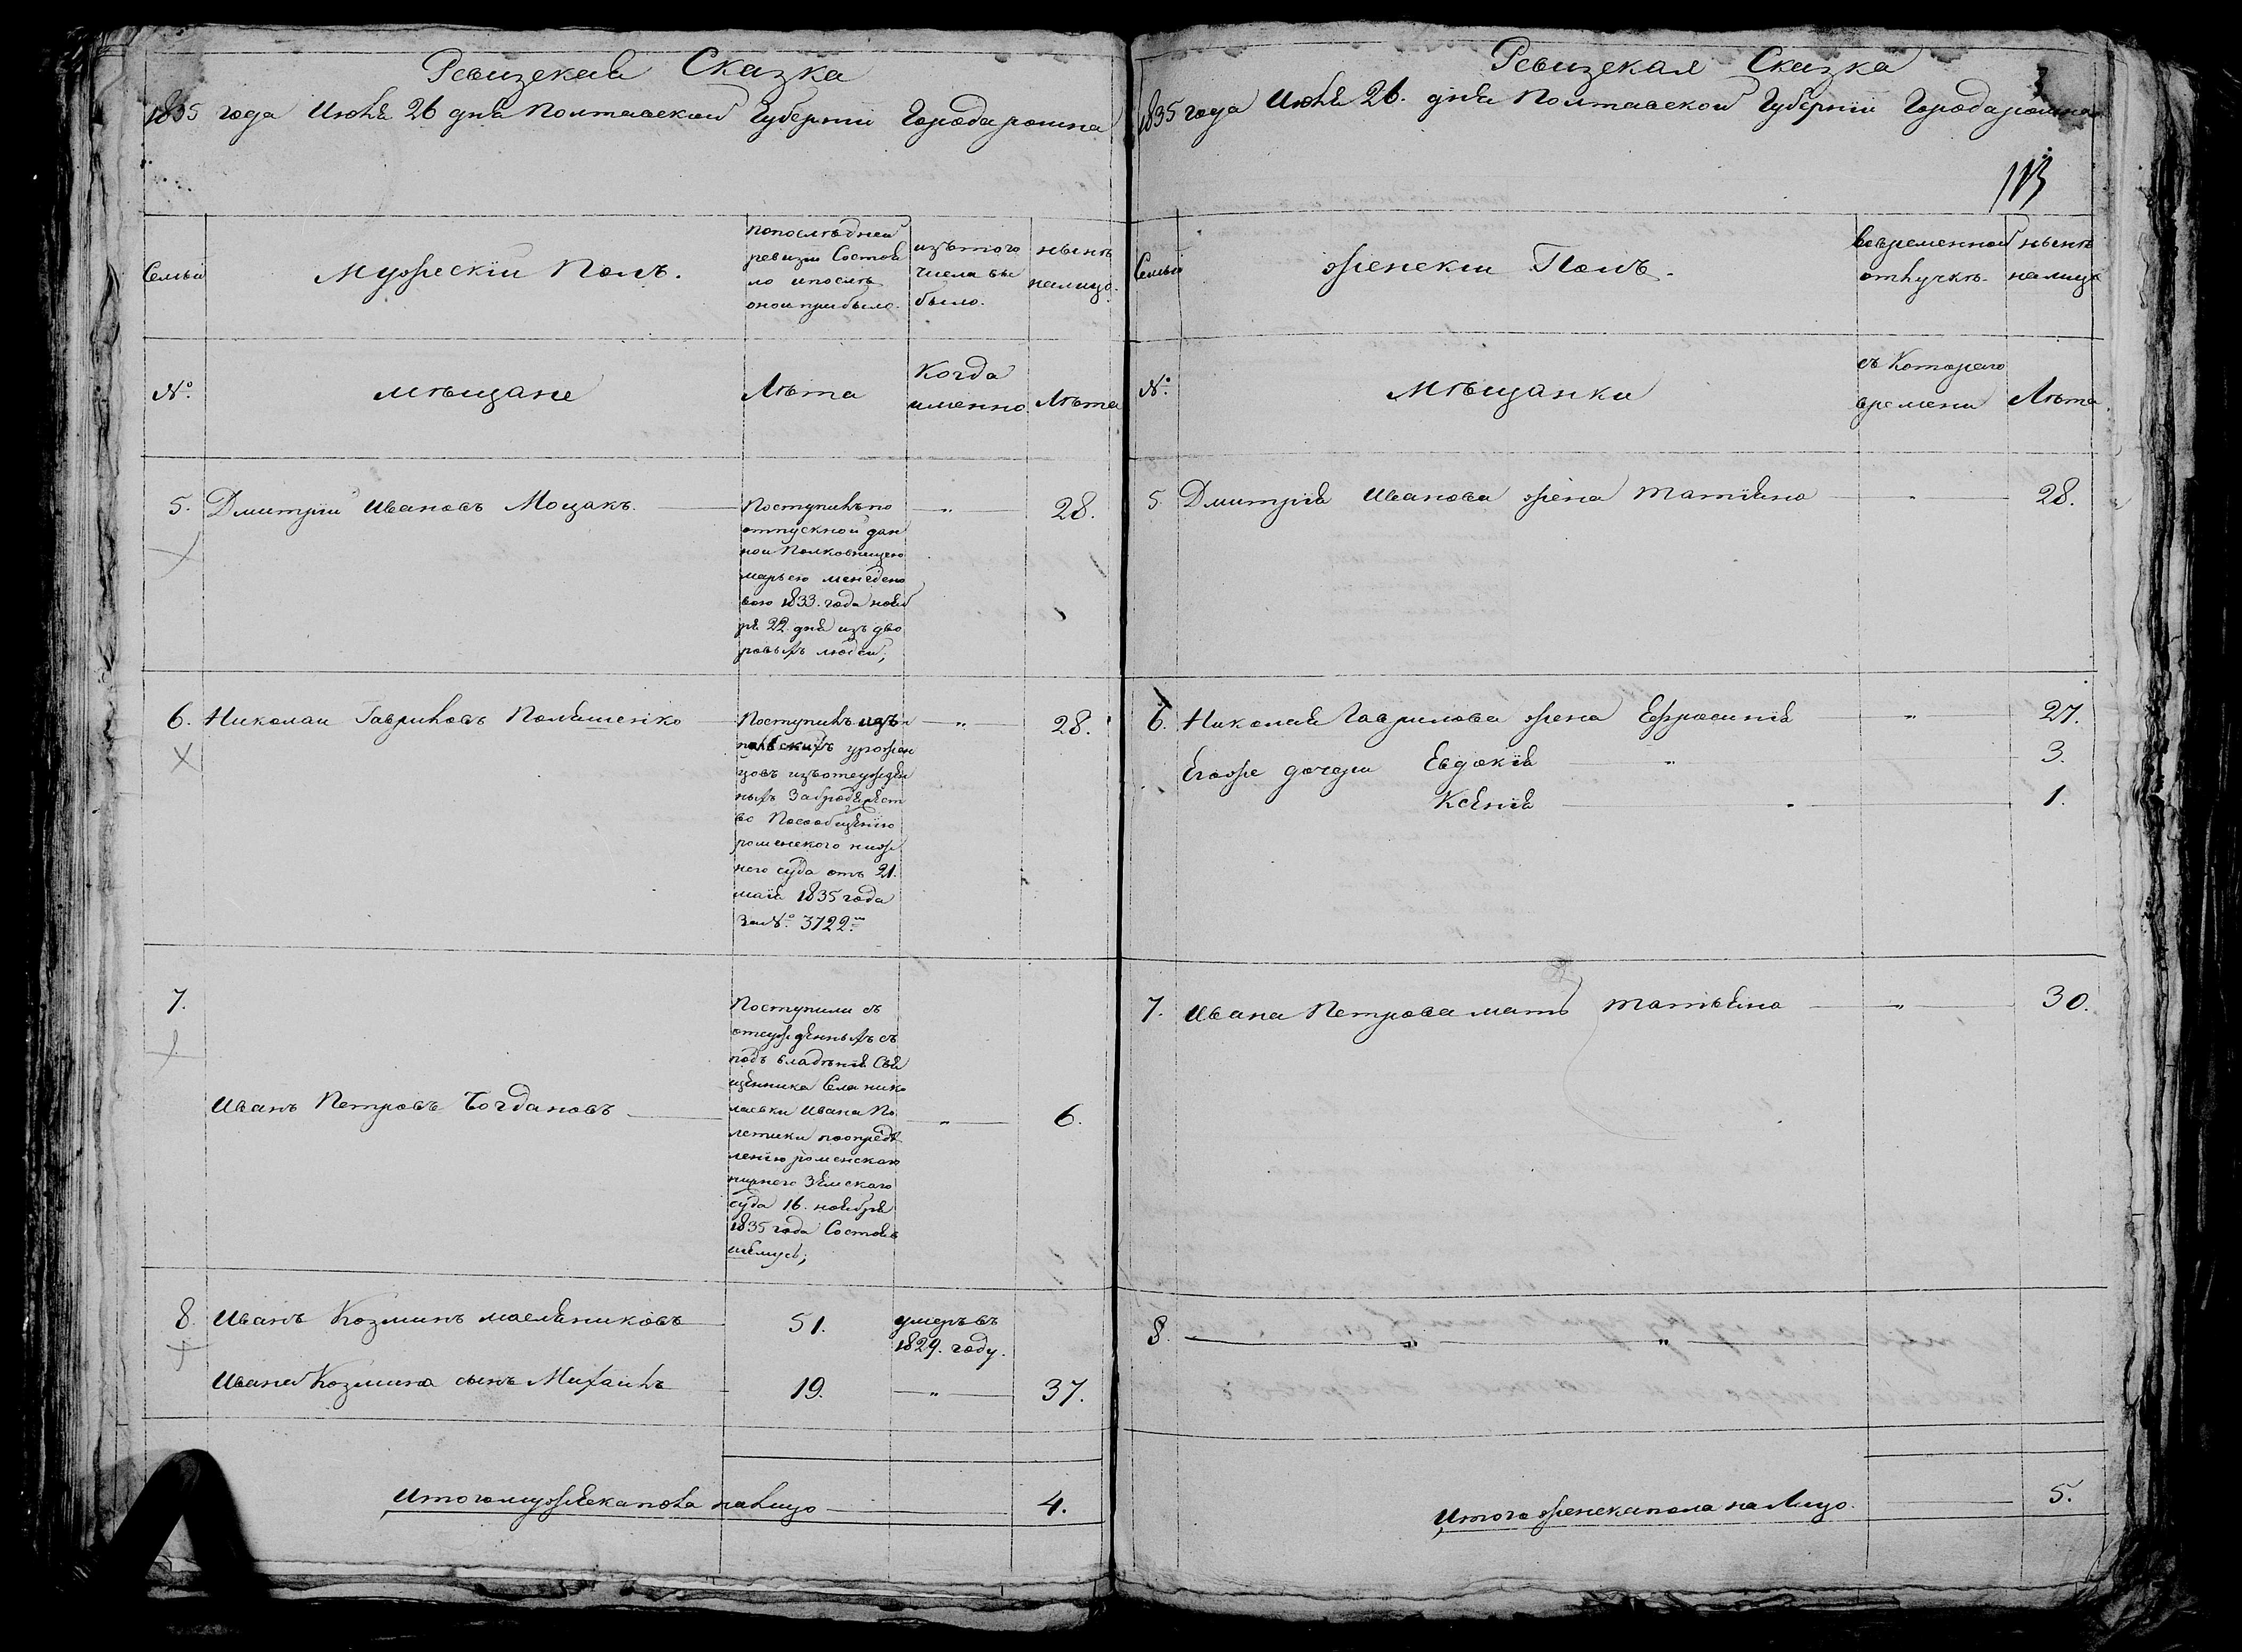 Ревизская Сказка
1835 года Июня 26 дня Полтавской Губернии Города ромна
Семьи
Мужескій Полъ.
попослѣдней
ревизіи Состоя
ло ипослѣ
оной прибыло.
изътого
числа вы
было.
нынѣ
налицо.
№.
мѣщане
Лѣта
Когда
именно
Лѣта
5. Дмитрій Ивановъ Моцакъ.
Поступилъ по
отпускной дан
ной Полковницею
марьею
вою 1833. года нояб
ря 22. дня изъ дво
ровыхъ людей;
" 28.
6. Николай Гавриловъ Поляшенко
Поступилъ изъ
польскихъ урожен
цовъ изъотсужден
ныхъ
во Посообщенію
роменского ниж
него суда отъ 21.
мая 1835 года
За № 3722.мъ
" 28.
7.
Иванъ Петровъ Богдановъ
Поступили съ
отсужденныхъ съ
подъ владѣнія Свя
щенника Села нико
лаевки Ивана По
летики поопредѣ
ленію роменского
нижнего Земского
суда 16. ноября
1835 года Состояв
шемуся;
" 6.
8. Иванъ Козминъ маслениковъ 51. умеръ въ
1829. году.
Ивана Козмина сынъ Михаилъ 19. " 37.
Итого мужеска пола налицо 4.
Ревизская Сказка
1835 года Июня 26. дня Полтавской Губерніи Города ромна
113
Семьи
женскій Полъ.
вовременной
отлучкѣ.
нынѣ
налицо
№.
Мѣщанки
съ Которого
времени
Лѣта
5 Дмитрія Иванова жена татіяна " 28.
6. Николая Гаврилова жена Ефросинія " 27.
Егоже дочери Евдокія " 3.
Ксенія " 1.
7. Ивана Петрова мать татьяна " 30.
8. " "
Итого женска пола на Лицо. 5.